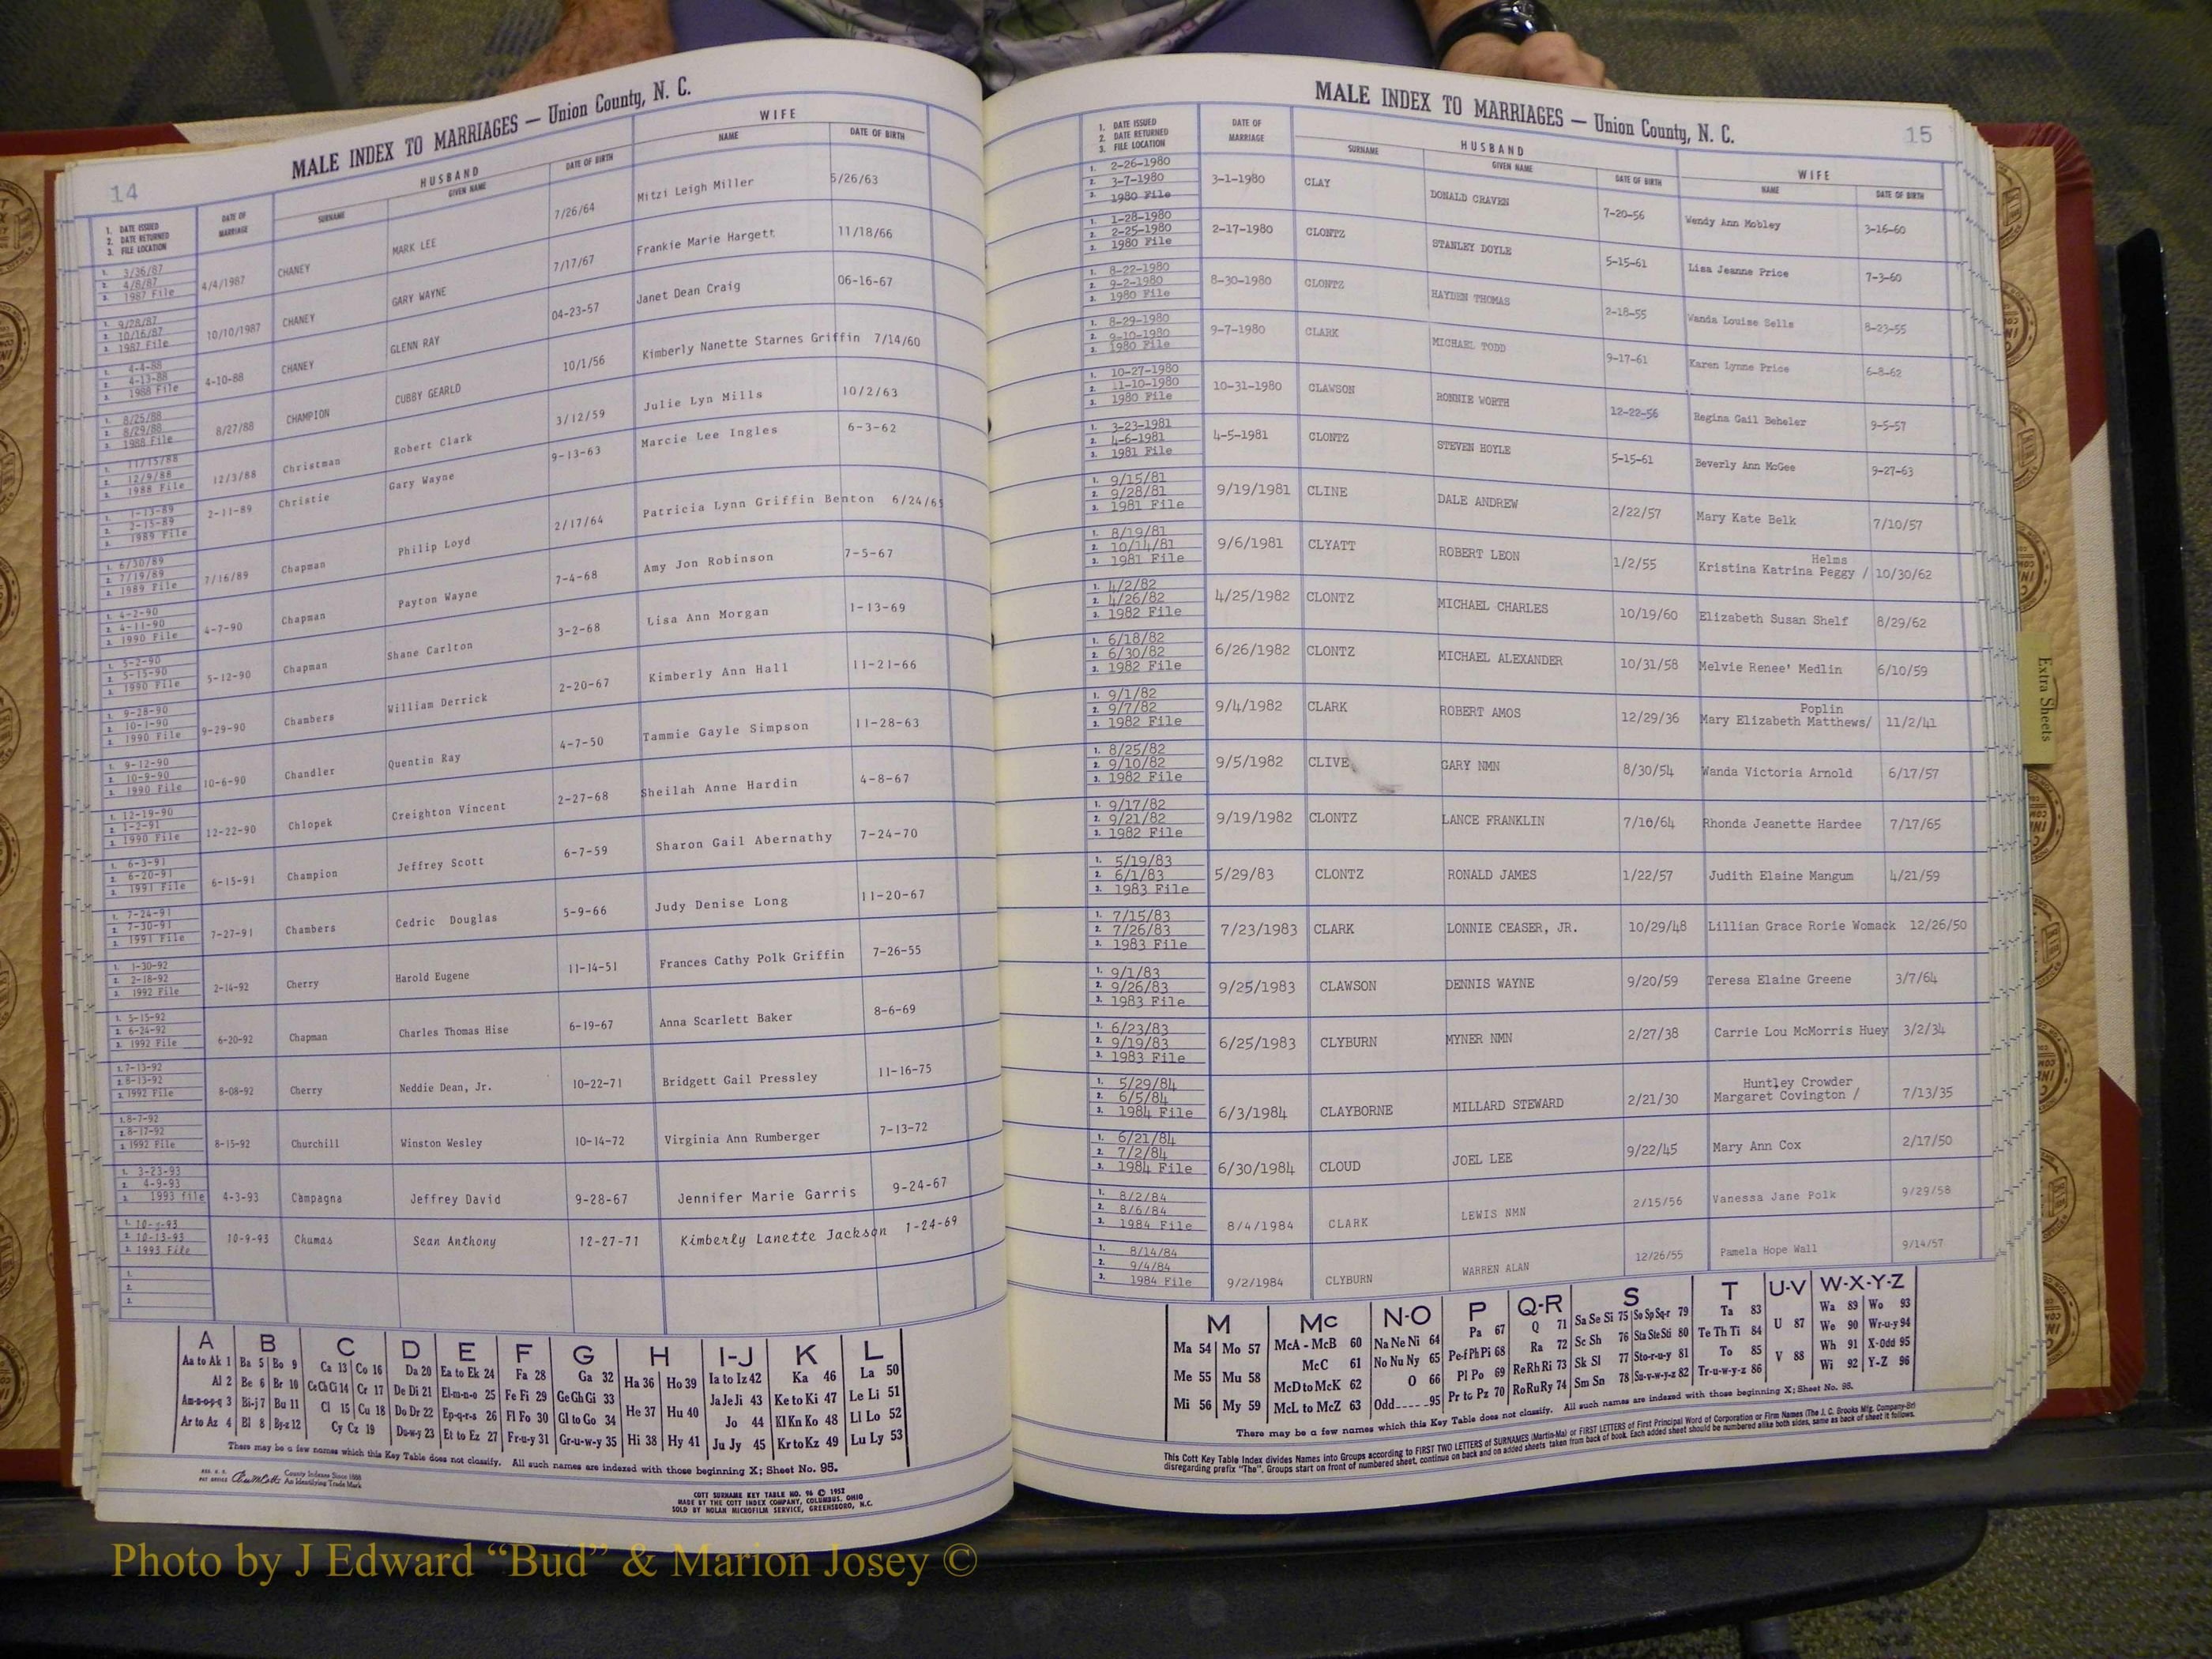 MALE INDEX TO MARRIAGES — Union County, N. C.
14
1. DATE ISSUED
2. DATE RETURNED
3. FILE LOCATION
DATE OF MARRIAGE
HUSBAND
SURNAME GIVEN NAME DATE OF BIRTH
WIFE
NAME DATE OF BIRTH
1. 3/36/87
2. 4/8/87
3. 1987 File
4/4/1987 CHANEY MARK LEE 7/26/64 Mitzi Leigh Miller 5/26/63
1. 9/28/87
2. 10/16/87
3. 1987 File
10/10/1987 CHANEY GARY WAYNE 7/17/67 Frankie Marie Hargett 11/18/66
1. 4-4-88
2. 4-13-88
3. 1988 File
4-10-88 CHANEY GLENN RAY 04-23-57 Janet Dean Craig 06-16-67
1. 8/25/88
2. 8/29/88
3. 1988 File
8/27/88 CHAMPION CUBBY GEARLD 10/1/56 Kimberly Nanette Starnes Griffin 7/14/60
1. 11/15/88
2. 12/9/88
3. 1988 File
12/3/88 Christman Robert Clark 3/12/59 Julie Lyn Mills 10/2/63
1. 1-13-89
2. 2-15-89
3. 1989 File
2-11-89 Christie Gary Wayne 9-13-63 Marcie Lee Ingles 6-3-62
1. 6/30/89
2. 7/19/89
3. 1989 File
7/16/89 Chapman Philip Loyd 2/17/64 Patricia Lynn Griffin Benton 6/24/65
1. 4-2-90
2. 4-11-90
3. 1990 File
4-7-90 Chapman Payton Wayne 7-4-68 Amy Jon Robinson 7-5-67
1. 5-2-90
2. 5-15-90
3. 1990 File
5-12-90 Chapman Shane Carlton 3-2-68 Lisa Ann Morgan 1-13-69
1. 9-28-90
2. 10-1-90
3. 1990 File
9-29-90 Chambers William Derrick 2-20-67 Kimberly Ann Hall 11-21-66
1. 9-12-90
2. 10-9-90
3. 1990 File
10-6-90 Chandler Quentin Ray 4-7-50 Tammie Gayle Simpson 11-28-63
1. 12-19-90
2. 1-2-91
3. 1990 File
12-22-90 Chlopek Creighton Vincent 2-27-68 Sheilah Anne Hardin 4-8-67
1. 6-3-91
2. 6-20-91
3. 1991 File
6-15-91 Champion Jeffrey Scott 6-7-59 Sharon Gail Abernathy 7-24-70
1. 7-24-91
2. 7-30-91
3. 1991 File
7-27-91 Chambers Cedric Douglas 5-9-66 Judy Denise Long 11-20-67
1. 1-30-92
2. 2-18-92
3. 1992 File
2-14-92 Cherry Harold Eugene 11-14-51 Frances Cathy Polk Griffin 7-26-55
1. 5-15-92
2. 6-24-92
3. 1992 File
6-20-92 Chapman Charles Thomas Hise 6-19-67 Anna Scarlett Baker 8-6-69
1. 7-13-92
2. 8-13-92
3. 1992 File
8-08-92 Cherry Neddie Dean, Jr. 10-22-71 Bridgett Gail Pressley 11-16-75
1. 8-7-92
2. 8-17-92
3. 1992 File
8-15-92 Churchill Winston Wesley 10-14-72 Virginia Ann Rumberger 7-13-72
1. 3-23-93
2. 4-9-93
3. 1993 file
4-3-93 Campagna Jeffrey David 9-28-67 Jennifer Marie Garris 9-24-67
1.
2. 10-13-93
3. 1993 File
10-9-93 Chumas Sean Anthony 12-27-71 Kimberly Lanette Jackson 1-24-69
1.
2.
3.
A B C D E F G H I-J K L
Aa to Ak 1 Ba 5 Bo 9 Ca 13 Co 16 Da 20 Ea to Ek 24 Fa 28 Ga 32 Ha 36 Ho 39 Ia to Iz 42 Ka 46 La 50
Al 2 Be 6 Br 10 Ce Ch Ci 14 Cr 17 De Di 21 El-m-n-o 25 Fe Fi 29 Ge Gh Gi 33 He 37 Hu 40 Ja Je Ji 43 Ke to Ki 47 Le Li 51
Am-n-o-p-q 3 Bi-j 7 Bu 11 Cl 15 Cu 18 Do Dr 22 Ep-q-r-s 26 Fl Fo 30 Gl to Go 34 Hi 38 Hy 41 Jo 44 Kl Kn Ko 48 Ll Lo 52
Ar to Az 4 Bl 8 By-z 12 Cy Cz 19 Du-w-y 23 Et to Ez 27 Fr-u-y 31 Gr-u-w-y 35 Ju Jy 45 Kr to Kz 49 Lu Ly 53
There may be a few names which this Key Table does not classify. All such names are indexed with those beginning X; Sheet No. 95.
County Indexes Since 1888
An Identifying Trade Mark
COTT SURNAME KEY TABLE NO. 96 © 1952
MADE BY THE COTT INDEX COMPANY, COLUMBUS, OHIO
SOLD BY NOLAN MICROFILM SERVICE, GREENSBORO, N.C.
MALE INDEX TO MARRIAGES — Union County, N. C.
15
1. DATE ISSUED
2. DATE RETURNED
3. FILE LOCATION
DATE OF MARRIAGE
HUSBAND
SURNAME GIVEN NAME DATE OF BIRTH
WIFE
NAME DATE OF BIRTH
1. 2-26-1980
2. 3-7-1980
3. 1980 File
3-1-1980 CLAY DONALD CRAVEN 7-20-56 Wendy Ann Mobley 3-16-60
1. 1-28-1980
2. 2-25-1980
3. 1980 File
2-17-1980 CLONTZ STANLEY DOYLE 5-15-61 Lisa Jeanne Price 7-3-60
1. 8-22-1980
2. 9-2-1980
3. 1980 File
8-30-1980 CLONTZ HAYDEN THOMAS 2-18-55 Wanda Louise Sells 8-23-55
1. 8-29-1980
2. 9-10-1980
3. 1980 File
9-7-1980 CLARK MICHAEL TODD 9-17-61 Karen Lynne Price 6-8-62
1. 10-27-1980
2. 11-10-1980
3. 1980 File
10-31-1980 CLAWSON RONNIE WORTH 12-22-56 Regina Gail Beheler 9-5-57
1. 3-23-1981
2. 4-6-1981
3. 1981 File
4-5-1981 CLONTZ STEVEN HOYLE 5-15-61 Beverly Ann McGee 9-27-63
1. 9/15/81
2. 9/28/81
3. 1981 File
9/19/1981 CLINE DALE ANDREW 2/22/57 Mary Kate Belk 7/10/57
1. 8/19/81
2. 10/14/81
3. 1981 File
Helms
9/6/1981 CLYATT ROBERT LEON 1/2/55 Kristina Katrina Peggy / 10/30/62
1. 4/2/82
2. 4/26/82
3. 1982 File
4/25/1982 CLONTZ MICHAEL CHARLES 10/19/60 Elizabeth Susan Shelf 8/29/62
1. 6/18/82
2. 6/30/82
3. 1982 File
6/26/1982 CLONTZ MICHAEL ALEXANDER 10/31/58 Melvie Renee' Medlin 6/10/59
1. 9/1/82
2. 9/7/82
3. 1982 File
Poplin
9/4/1982 CLARK ROBERT AMOS 12/29/36 Mary Elizabeth Matthews/ 11/2/41
1. 8/25/82
2. 9/10/82
3. 1982 File
9/5/1982 CLIVE GARY NMN 8/30/54 Wanda Victoria Arnold 6/17/57
1. 9/17/82
2. 9/21/82
3. 1982 File
9/19/1982 CLONTZ LANCE FRANKLIN 7/10/64 Rhonda Jeanette Hardee 7/17/65
1. 5/19/83
2. 6/1/83
3. 1983 File
5/29/83 CLONTZ RONALD JAMES 1/22/57 Judith Elaine Mangum 4/21/59
1. 7/15/83
2. 7/26/83
3. 1983 File
7/23/1983 CLARK LONNIE CEASER, JR. 10/29/48 Lillian Grace Rorie Womack 12/26/50
1. 9/1/83
2. 9/26/83
3. 1983 File
9/25/1983 CLAWSON DENNIS WAYNE 9/20/59 Teresa Elaine Greene 3/7/64
1. 6/23/83
2. 9/19/83
3. 1983 File
6/25/1983 CLYBURN MYNER NMN 2/27/38 Carrie Lou McMorris Huey 3/2/34
1. 5/29/84
2. 6/5/84
3. 1984 File
Huntley Crowder
6/3/1984 CLAYBORNE MILLARD STEWARD 2/21/30 Margaret Covington / 7/13/35
1. 6/21/84
2. 7/2/84
3. 1984 File
6/30/1984 CLOUD JOEL LEE 9/22/45 Mary Ann Cox 2/17/50
1. 8/2/84
2. 8/6/84
3. 1984 File
8/4/1984 CLARK LEWIS NMN 2/15/56 Vanessa Jane Polk 9/29/58
1. 8/14/84
2. 9/4/84
3. 1984 File
9/2/1984 CLYBURN WARREN ALAN 12/26/55 Pamela Hope Wall 9/14/57
M Mc N-O P Q-R S T U-V W-X-Y-Z
Ma 54 Mo 57 McA - McB 60 Na Ne Ni 64 Pa 67 Q 71 Sa Se Si 75 So Sp Sq-r 79 Ta 83 U 87 Wa 89 Wo 93
Me 55 Mu 58 McC 61 No Nu Ny 65 Pe-f Ph Pi 68 Ra 72 Sc Sh 76 Sta Ste Sti 80 Te Th Ti 84 V 88 We 90 Wr-u-y 94
Mi 56 My 59 McD to McK 62 O 66 Pl Po 69 Re Rh Ri 73 Sk Sl 77 Sto-r-u-y 81 To 85 Wh 91 X-Odd 95
McL to McZ 63 Odd 95 Pr to Pz 70 Ro Ru Ry 74 Sm Sn 78 Su-v-w-y-z 82 Tr-u-w-y-z 86 Wi 92 Y-Z 96
There may be a few names which this Key Table does not classify. All such names are indexed with those beginning X; Sheet No. 95.
This Cott Key Table Index divides Names into Groups according to FIRST TWO LETTERS of SURNAMES (Martin-Ma) or FIRST LETTERS of First Principal Word of Corporation or Firm Names (The J. C. Brooks Mfg. Company-Br)
disregarding prefix "The". Groups start on front of numbered sheet, continue on back and on added sheets taken from back of book. Each added sheet should be numbered alike both sides, same as back of sheet it follows.
Extra Sheets
Photo by J Edward “Bud” & Marion Josey ©